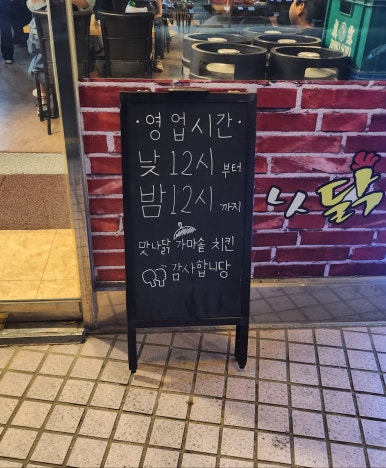 ·영업시간·
낮 12시 부터
밤 12시 까지
맛나닭 가마솥 치킨
감사합니당
나닭